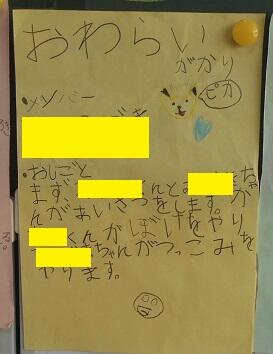 おわらい
がかり
ピカ
・メンバー
・おしごと
まず、くんと
んが、あいさつをします。
くんがぼけをやり
ちゃんがつっこみを
やります。